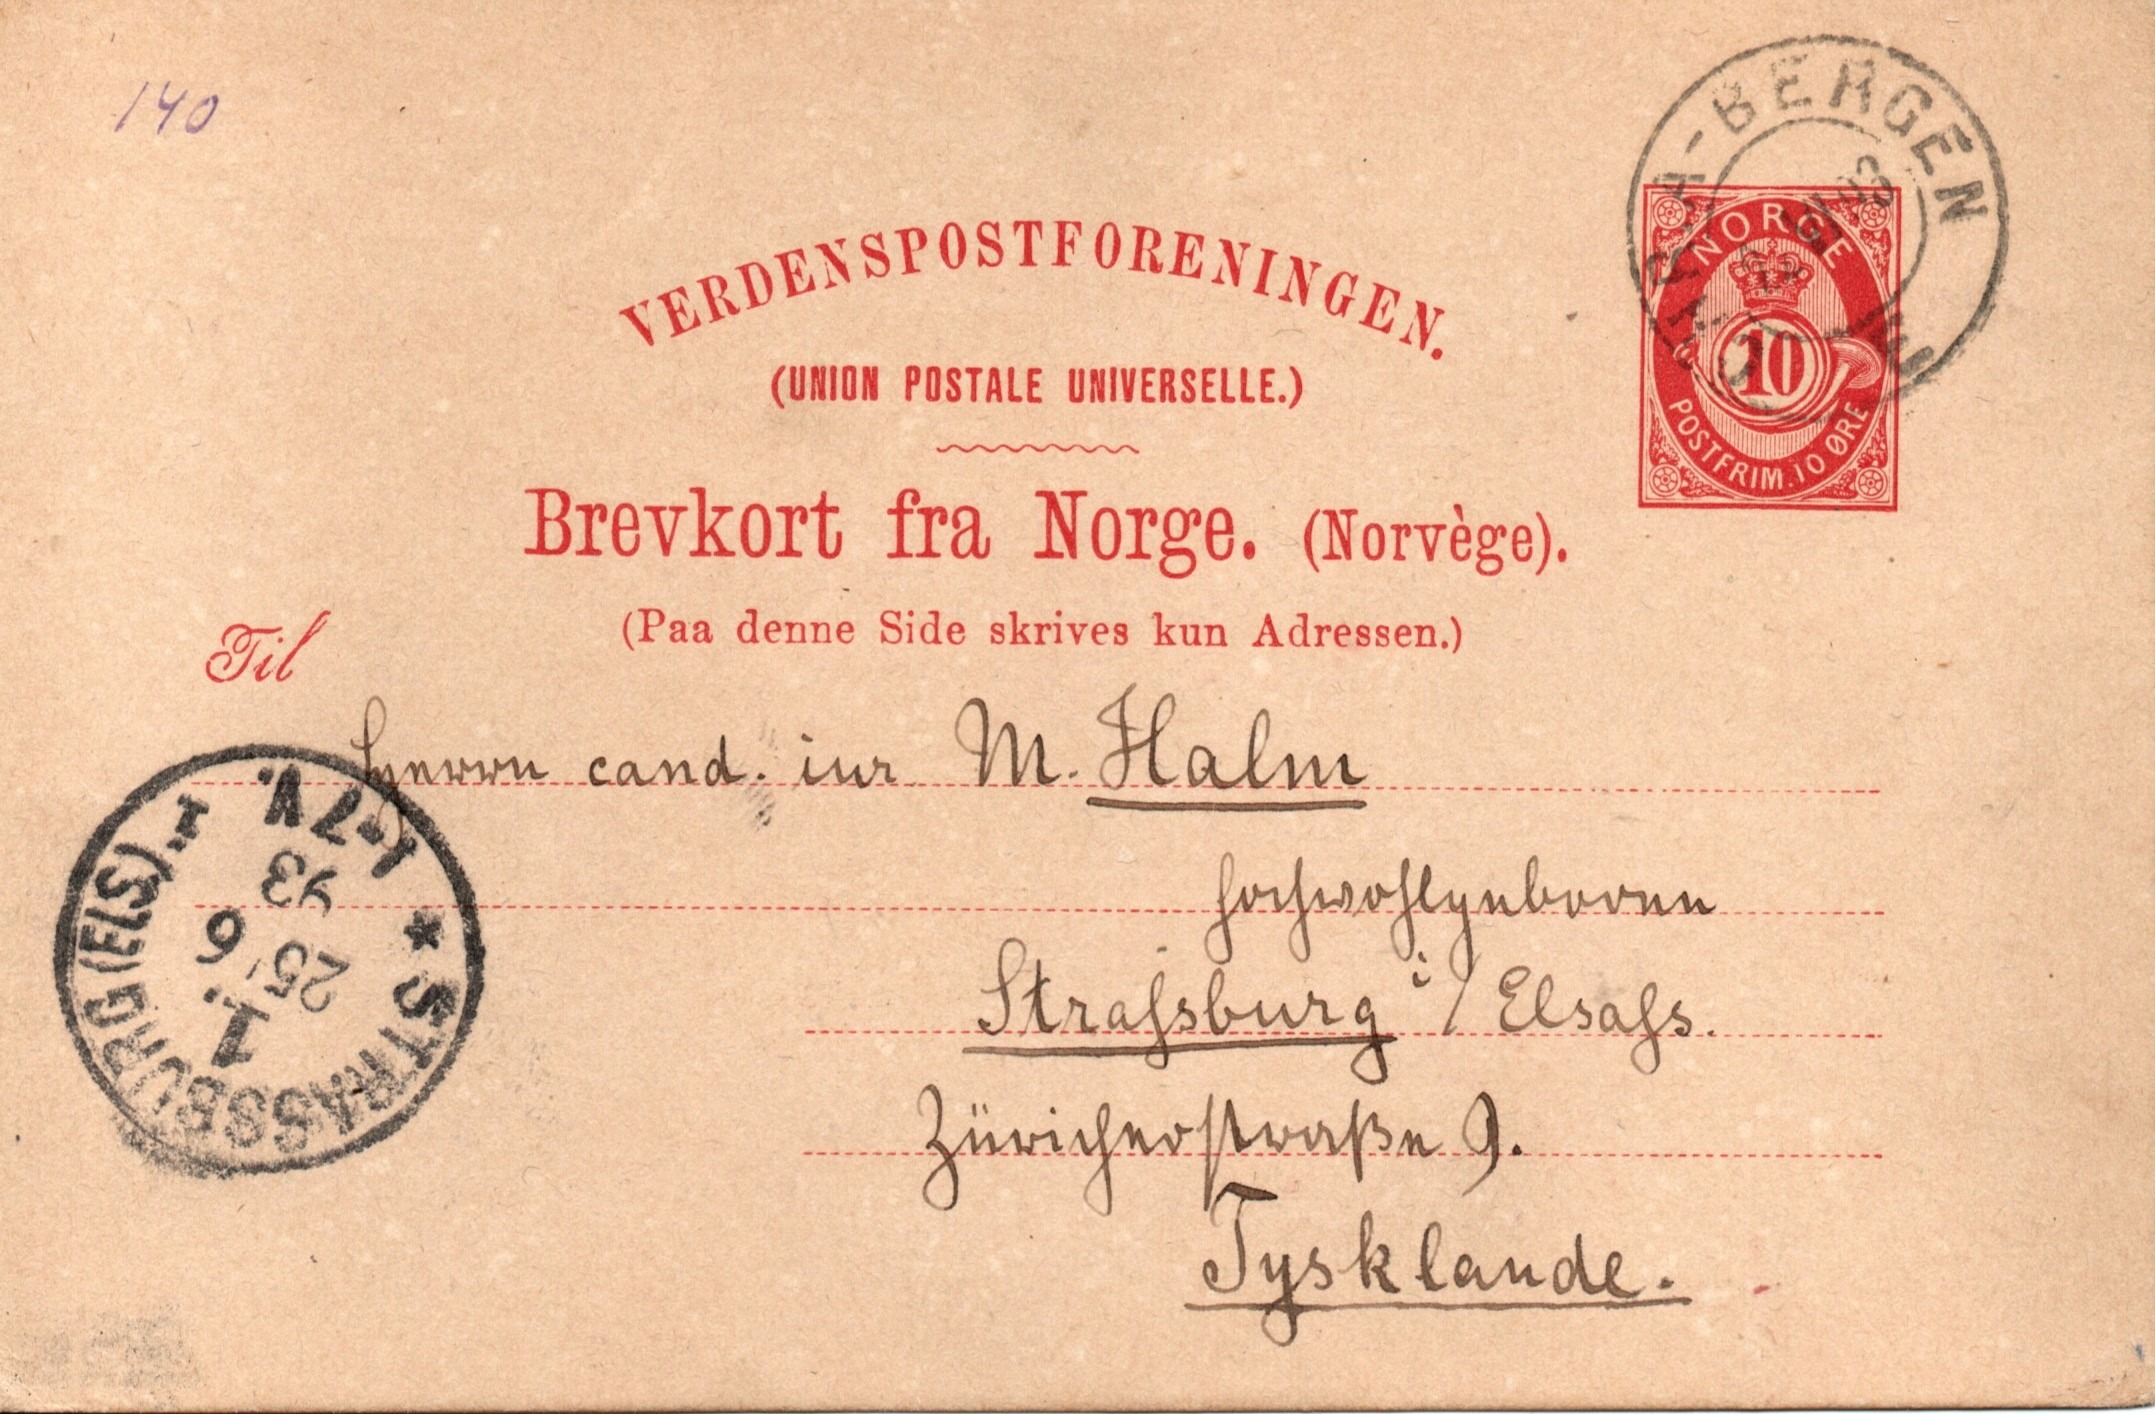 140
VERDENSPOSTFORENINGEN.
(UNION POSTALE UNIVERSELLE.)
Brevkort fra Norge. (Norvège).
(Paa denne Side skrives kun Adressen.)
NORGE
10
POSTFRIM. 10 ØRE
-BERGEN
93
III
Til
Herrn cand. iur M. Halm
Hochwohlgeboren
Strassburg i/Elsass.
Züricherstraße 9.
Tysklande.
* STRASSBURG (ELS). 1
1.
25 6
93
1-7V.